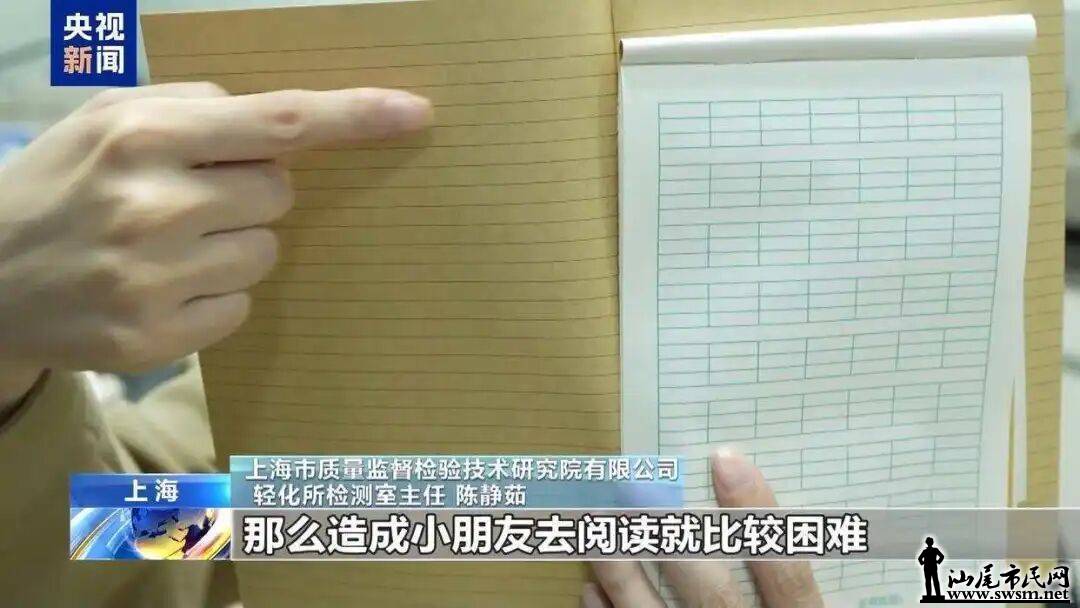 央视
新闻
上海市质量监督检验技术研究院有限公司
上海
轻化所检测室主任 陈静茹
那么造成小朋友去阅读就比较困难
汕尾市民网
www.swsm.net